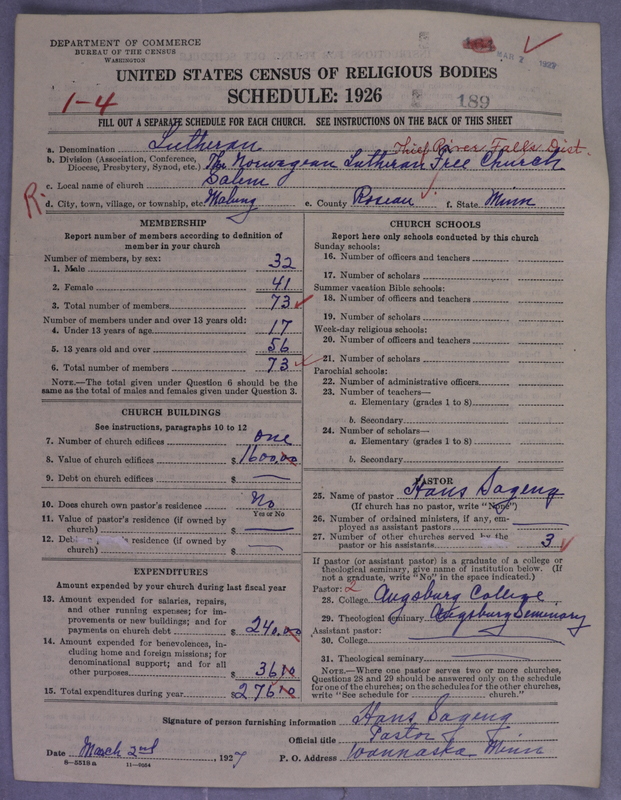 DEPARTMENT OF COMMERCE
BUREAU OF THE CENSUS
WASHINGTON
MAR 2 1927
UNITED STATES CENSUS OF RELIGIOUS BODIES
SCHEDULE: 1926
1-4
189
FILL OUT A SEPARATE SCHEDULE FOR EACH CHURCH. SEE INSTRUCTIONS ON THE BACK OF THIS SHEET
a. Denomination Lutheran Thief River Falls Dist.
b. Division (Association, Conference, Diocese, Presbytery, Synod, etc.) The Norwagean Lutheran Free Church
c. Local name of church Salem
R. d. City, town, village, or township, etc. Malung e. County Roseau f. State Minn
MEMBERSHIP
Report number of members according to definition of
member in your church
Number of members, by sex:
1. Male 32
2. Female 41
3. Total number of members 73
Number of members under and over 13 years old:
4. Under 13 years of age 17
5. 13 years old and over 56
6. Total number of members 73
NOTE.—The total given under Question 6 should be the
same as the total of males and females given under Question 3.
CHURCH BUILDINGS
See instructions, paragraphs 10 to 12
7. Number of church edifices one
8. Value of church edifices $ 1600.00
9. Debt on church edifices $
10. Does church own pastor's residence No
Yes or No
11. Value of pastor's residence (if owned by
church) $
12. Debt residence (if owned by
church) $
EXPENDITURES
Amount expended by your church during last fiscal year
13. Amount expended for salaries, repairs,
and other running expenses; for im-
provements or new buildings; and for
payments on church debt $ 240.00
14. Amount expended for benevolences, in-
cluding home and foreign missions; for
denominational support; and for all
other purposes $ 36 10
15. Total expenditures during year $ 276 10
CHURCH SCHOOLS
Report here only schools conducted by this church
Sunday schools:
16. Number of officers and teachers
17. Number of scholars
Summer vacation Bible schools:
18. Number of officers and teachers
19. Number of scholars
Week-day religious schools:
20. Number of officers and teachers
21. Number of scholars
Parochial schools:
22. Number of administrative officers
23. Number of teachers—
a. Elementary (grades 1 to 8)
b. Secondary
24. Number of scholars—
a. Elementary (grades 1 to 8)
b. Secondary
PASTOR
25. Name of pastor Hans Sageng
(If church has no pastor, write "None")
26. Number of ordained ministers, if any, em-
ployed as assistant pastors
27. Number of other churches served by the
pastor or his assistants 3
If pastor (or assistant pastor) is a graduate of a college or
theological seminary, give name of institution below. (If
not a graduate, write "No" in the space indicated.)
Pastor: 2
28. College Augsburg College
29. Theological seminary Augsburg Seminary
Assistant pastor:
30. College
31. Theological seminary
NOTE.—Where one pastor serves two or more churches,
Questions 28 and 29 should be answered only on the schedule
for one of the churches; on the schedules for the other churches,
write "See schedule for church."
Signature of person furnishing information Hans Sageng
Official title Pastor
Date March 2nd, 1927 P. O. Address Wannaska Minn
8-5518 a 11-9054